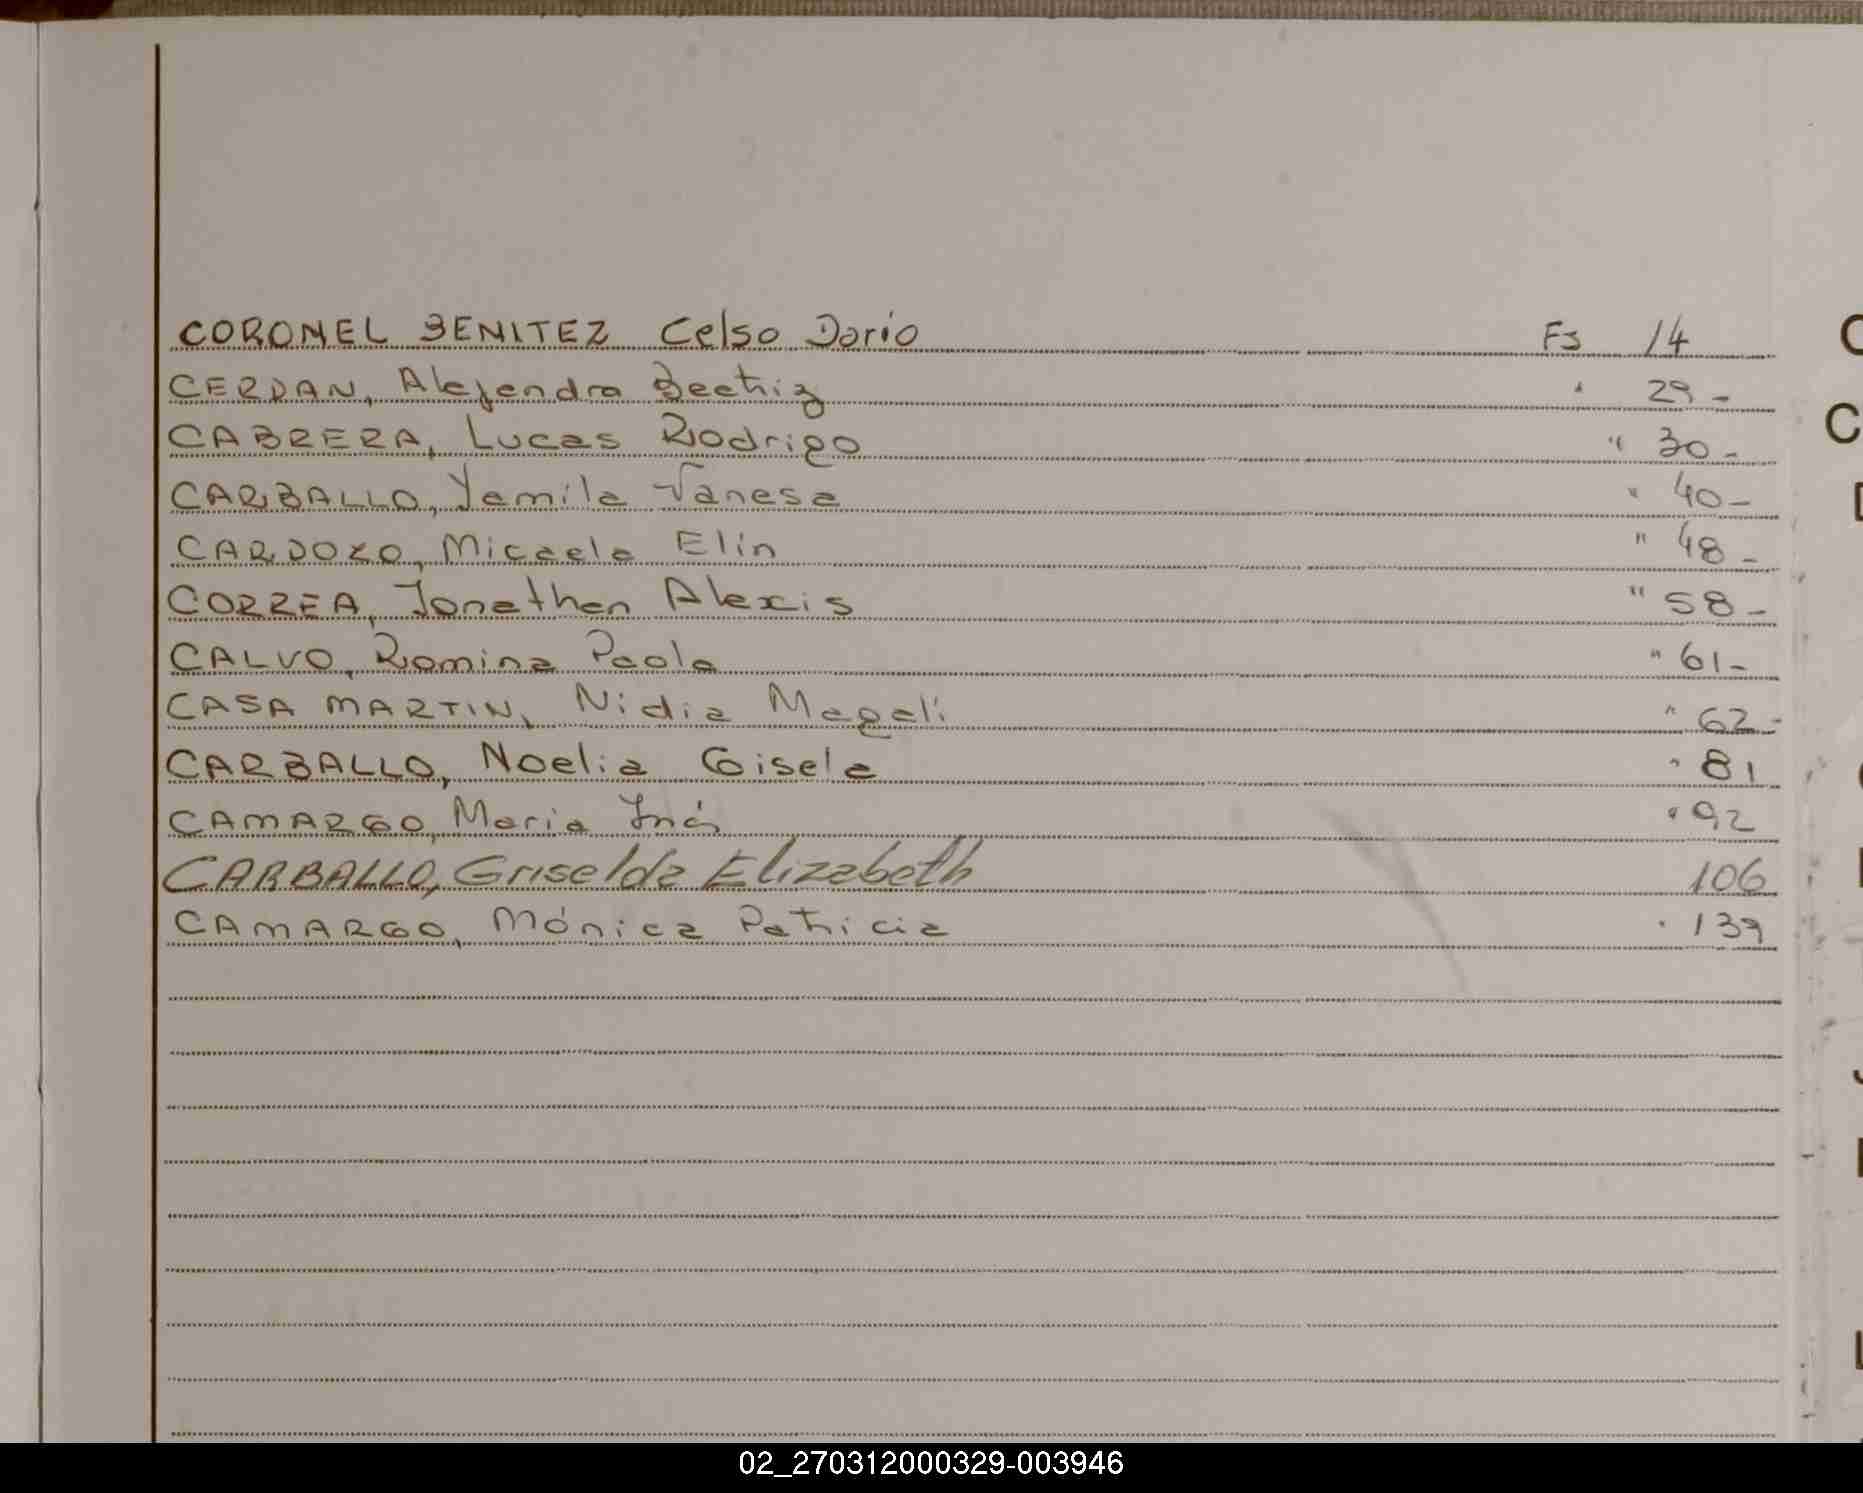 CORONEL BENITEZ Celso Dario Fs 14
CERDAN, Alejandra Beatriz " 29-
CABRERA, Lucas Rodrigo " 30-
CARBALLO, Yamila Vanesa " 40-
CARDOZO, Micaela Elin " 48-
CORREA, Jonathan Alexis " 58-
CALVO, Romina Paola " 61-
CASA MARTIN, Nidia Magali " 62-
CARBALLO, Noelia Gisela " 81
CAMARGO, Maria Inés " 92
CARBALLO, Griselda Elizabeth 106
CAMARGO, Mónica Patricia " 139
02_270312000329-003946